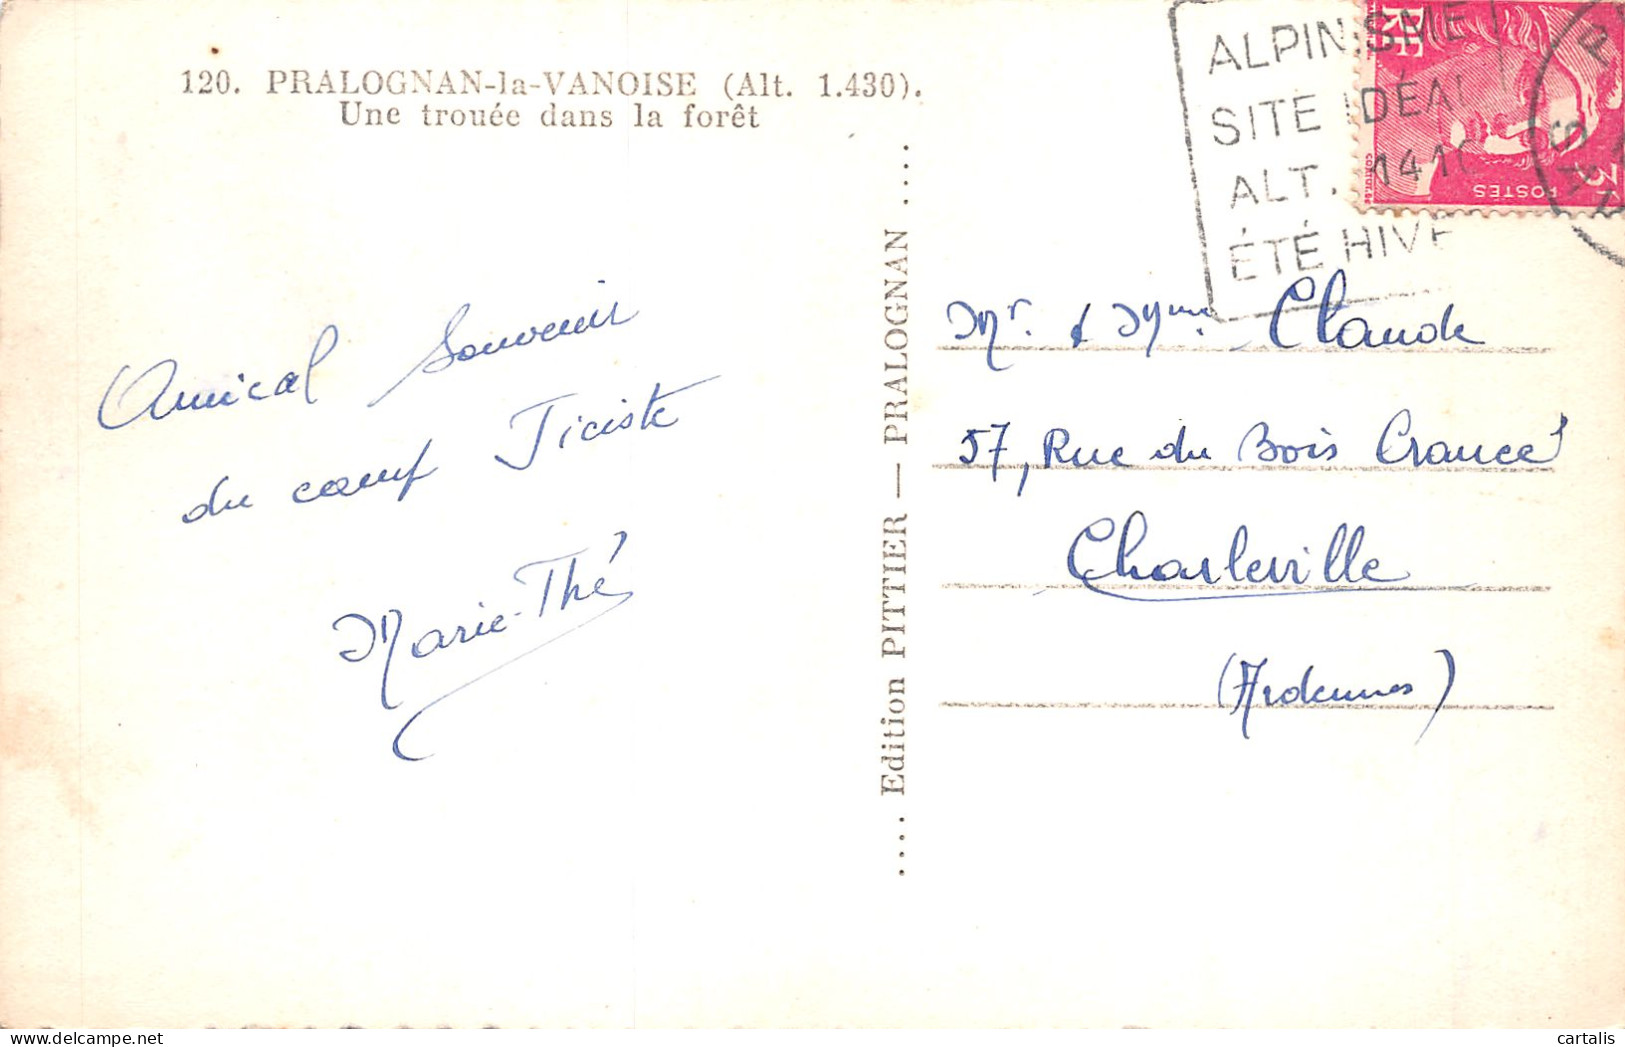 120. PRALOGNAN-la-VANOISE (Alt. 1.430).
Une trouée dans la forêt
Amical Souvenir
du camp Jiciste
Marie-Thé
.... Edition PITTIER — PRALOGNAN — PRALOGNAN ....
ALPINISME
SITE IDÉAL
ALT. 1410
ÉTÉ HIVE
RF
POSTES
3
Mr. & Mme Claude
57, Rue du Bois Crancé
Charleville
(Ardennes)
cartalis